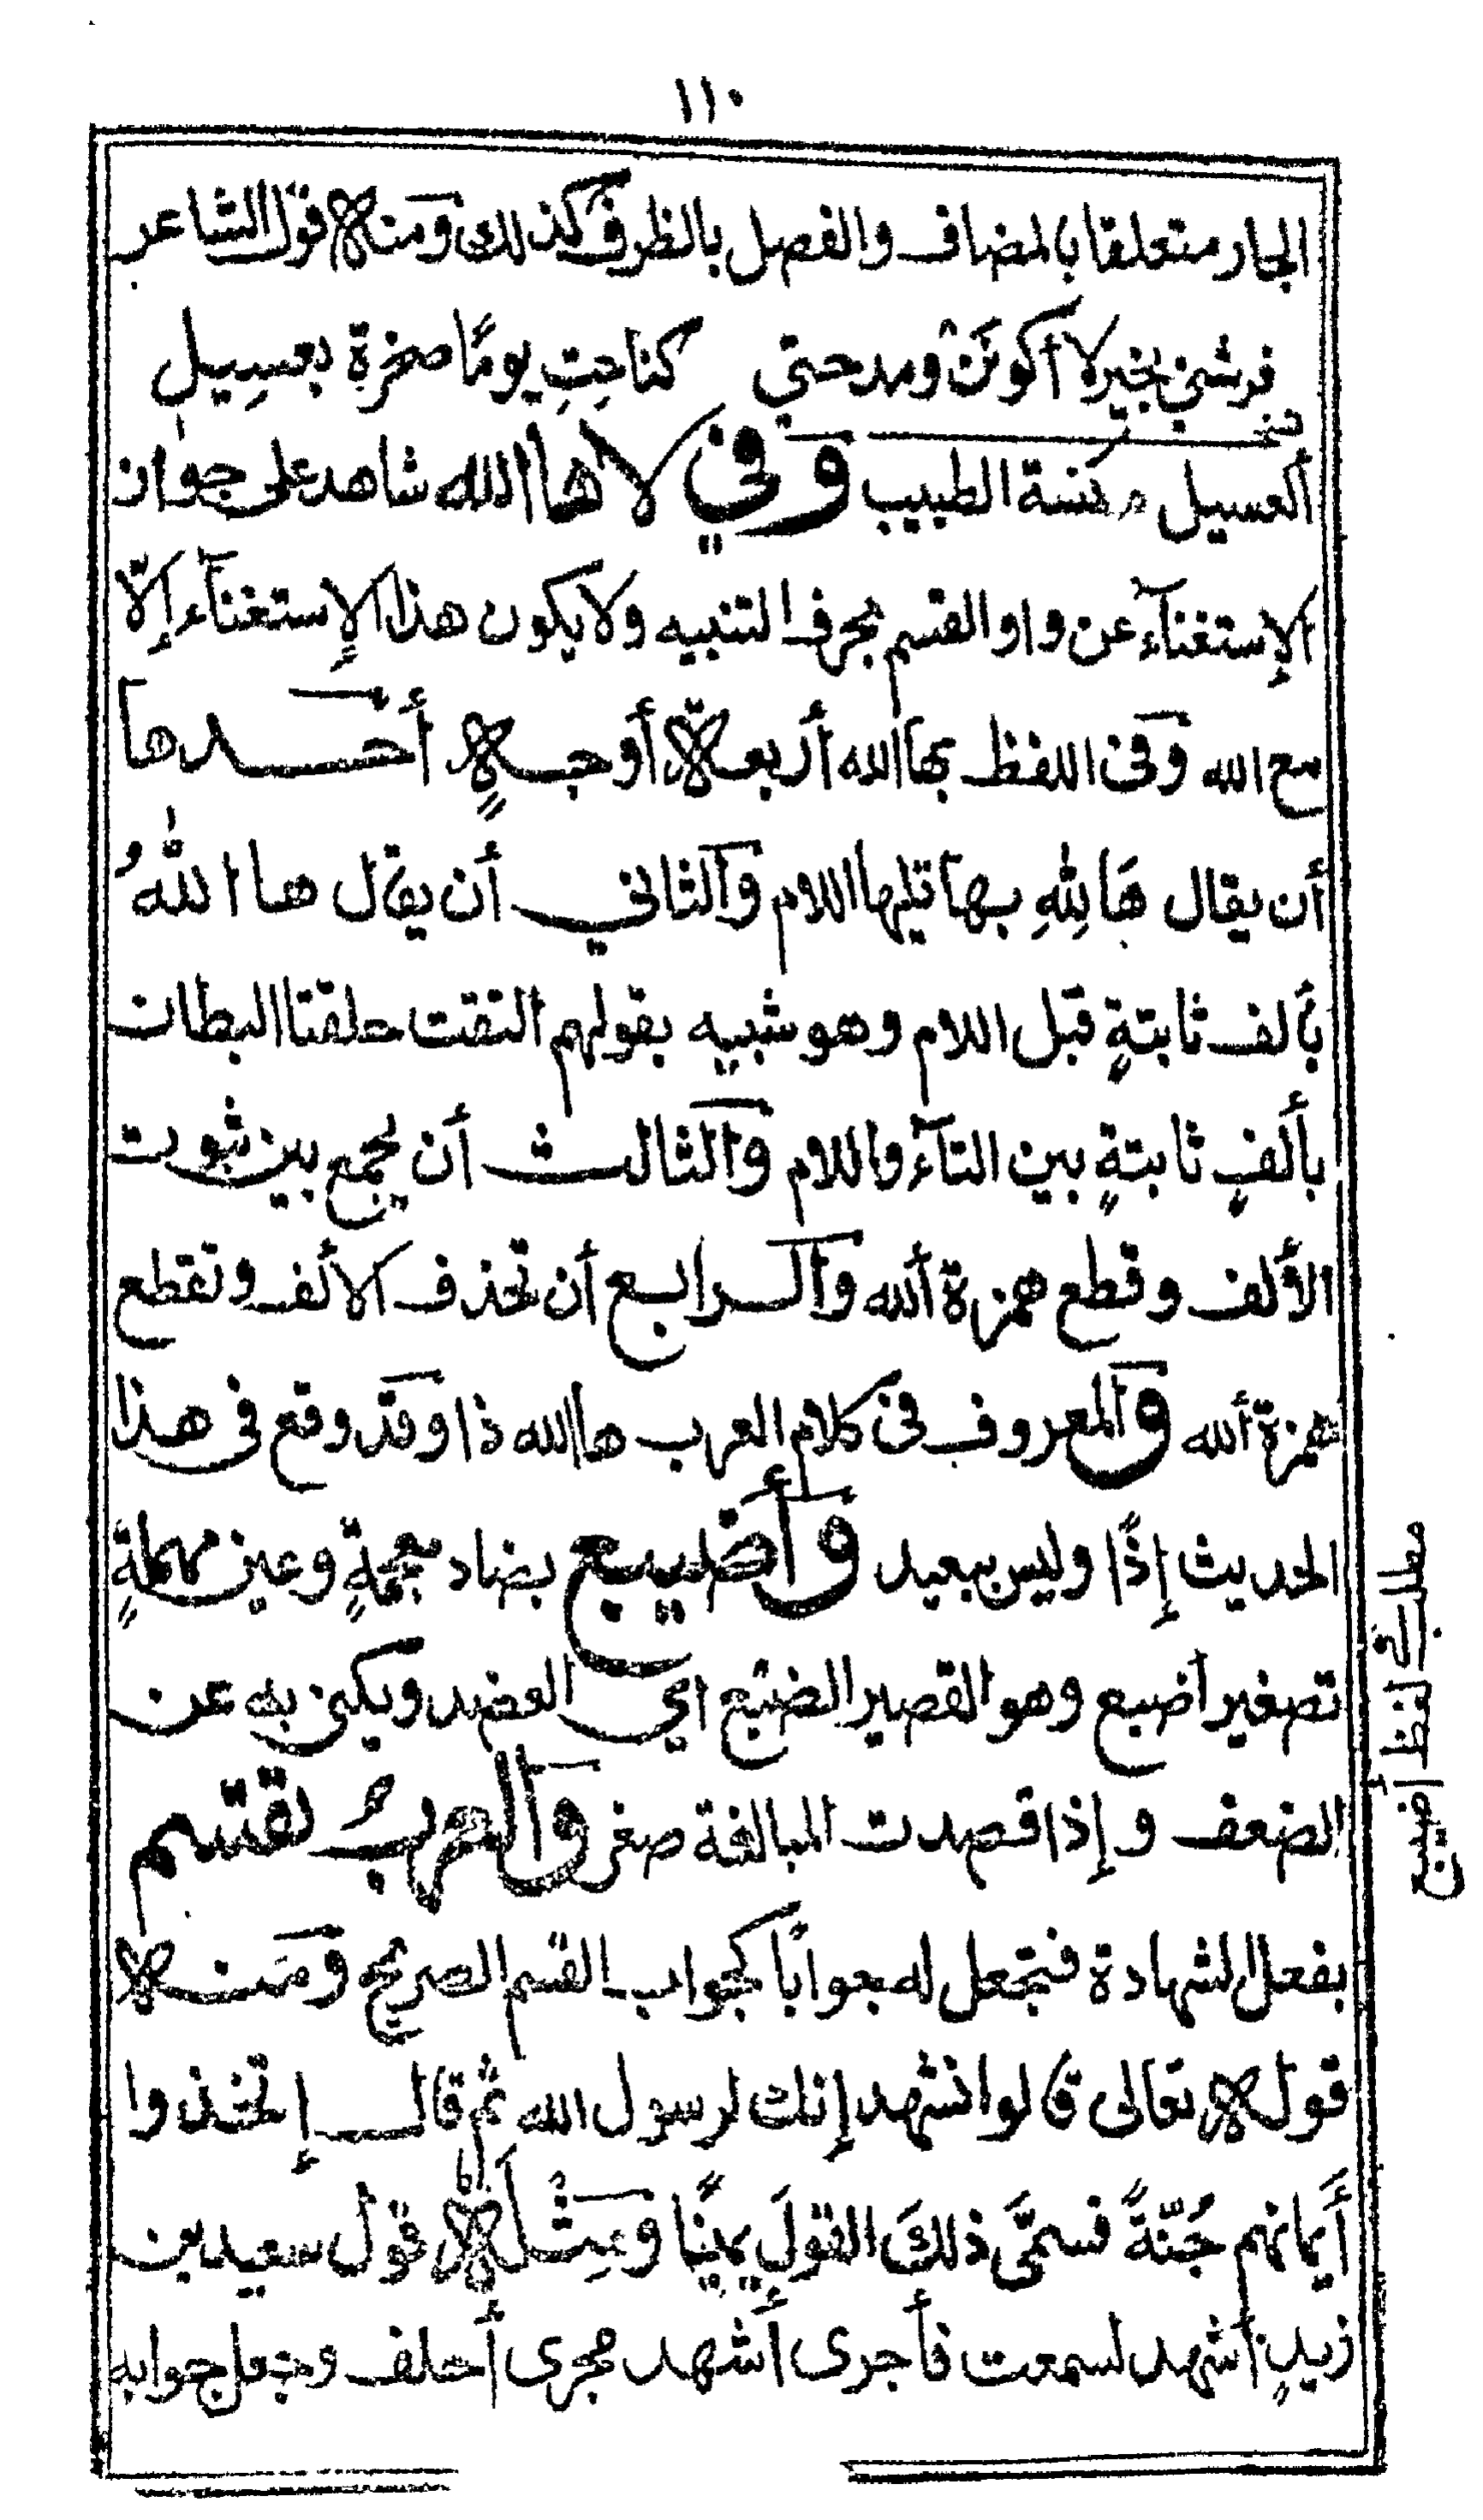 ١١٠
الجار متعلقا بالمضاف والفصل بالظرف كذلك ومنه قول الشاعر
فرشني بخير لا أكونن ومدحتي كناحِتِ يومًا صخرةٍ بعسِيلِ
العسيل مكنسة الطبيب وفي لاها الله شاهد على جواز
الإستغنآء عن واو القسم بحرف التنبيه ولا يكون هذا الإستغنآء إلّا
مع الله وفى اللفظ بها الله أربعة أوجهٍ أحدها
أن يقال هَالِلهِ بها تليها اللام والثاني أن يقال ها اللهُ
بألف ثابتةٍ قبل اللام وهو شبيه بقولهم التقت حلقتا البطان
بألفٍ ثابتةٍ بين التآء واللام والثالث أن يجمع بين ثبوت
الألف وقطع همزة ألله والرابع أن تحذف الألف وتقطع
همزة ألله والمعروف فى كلام العرب ها الله ذا وقد وقع فى هذا
الحديث إذًا وليس ببعيد وأضيبع بضاد معجمةٍ وعين مهملةٍ
تصغير أضبع وهو القصير الضبع اي العضد ويكنى به عن
الضعف وإذا قصدت المبالغة صغر والعربُ تقسم
بفعل الشهادة فتجعل له جوابًا كجواب القسم الصريح ومنه
قوله تعالى قالوا نشهد إنك لرسول الله ثم قال إتخذوا
أَيمانهم جُنّةً فسمَّى ذلكَ القولَ يمينًا ومِثْلُه قول سعيد بن
زيدٍ أشهد لسمعت فأجرى أشهد مجرى أحلف وجعل جوابه